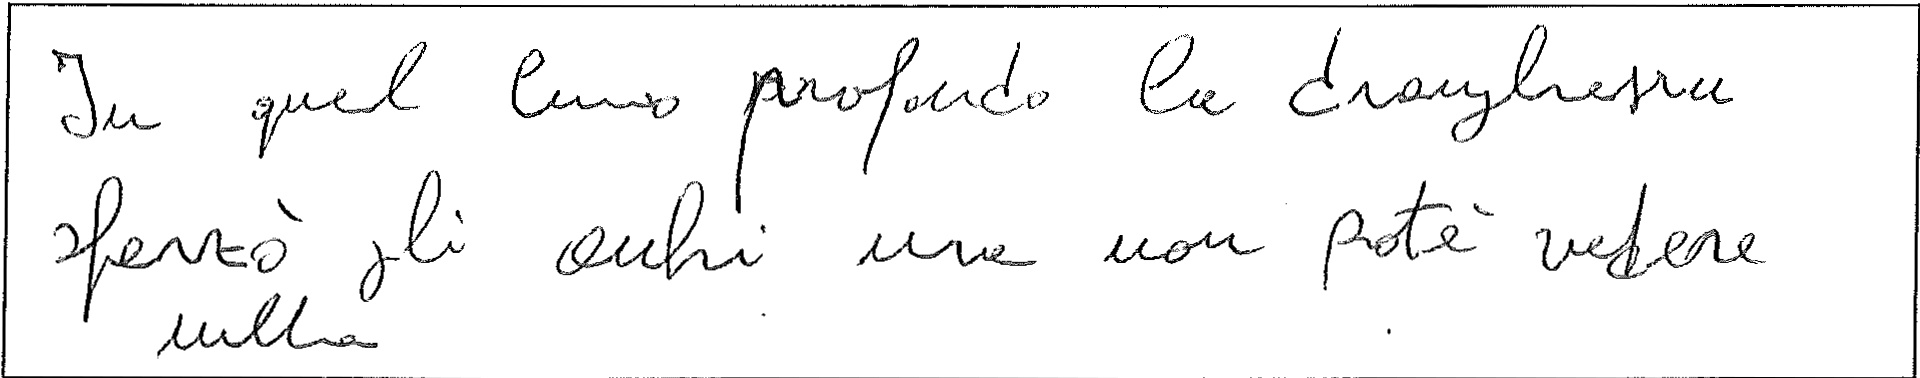 In quel buio profondo la
sforzò gli occhi ma non poté vedere
nulla